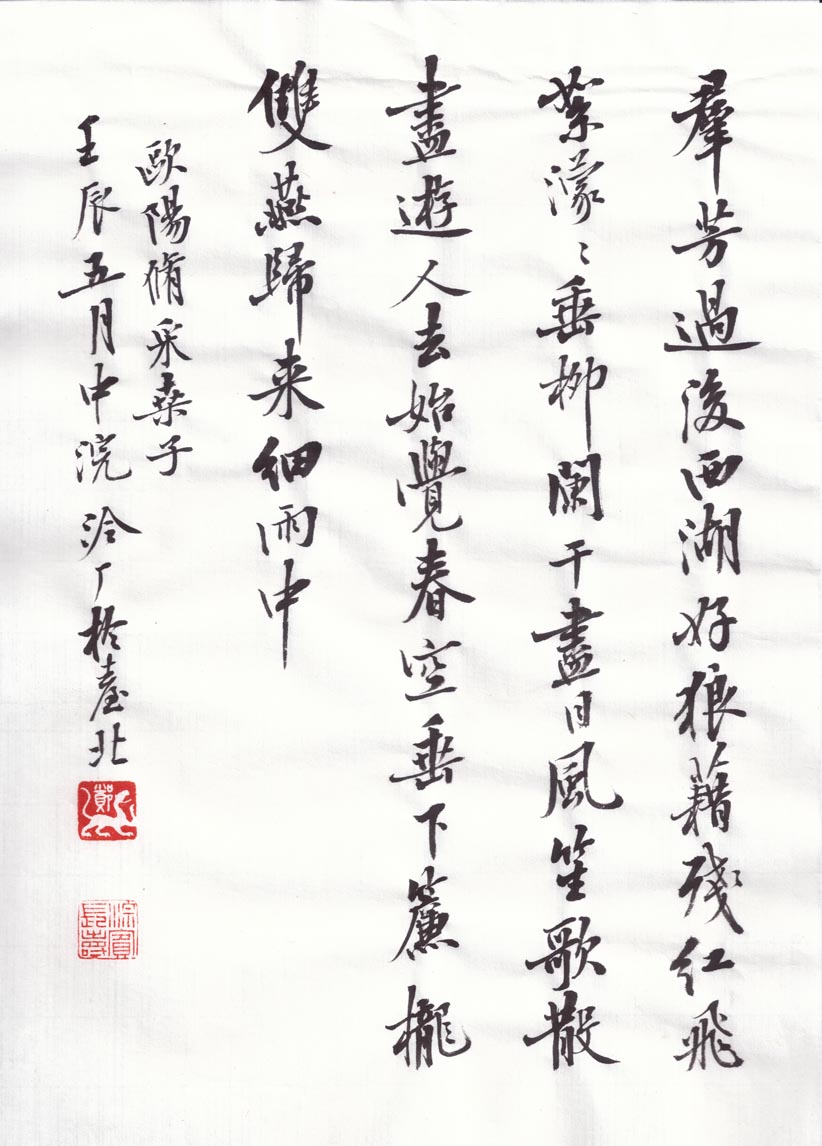 羣芳過後西湖好狼藉殘紅飛
絮濛〻垂柳闌干盡日風笙歌散
盡遊人去始覺春空垂下簾櫳
雙燕歸来細雨中
歐陽脩采桑子
壬辰五月中浣泠丁於臺北